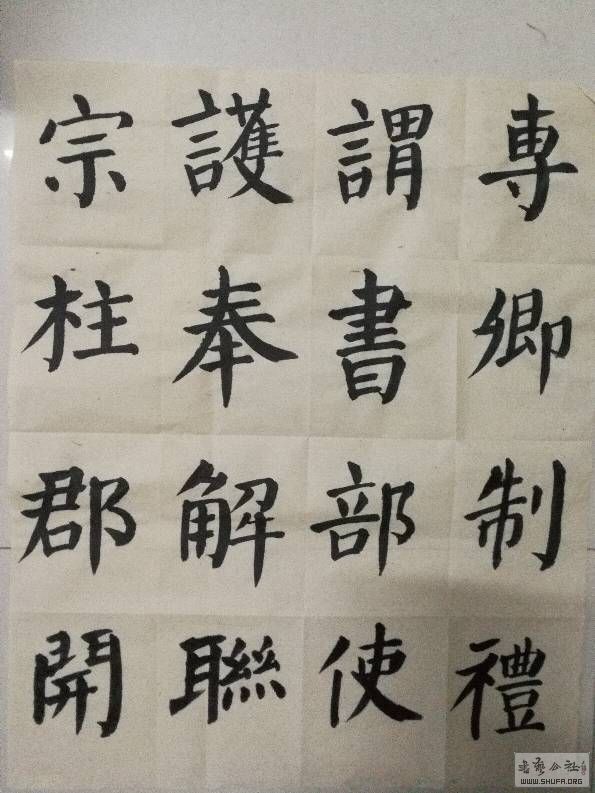 専卿制禮
謂書部使
護奉解聯
宗柱郡開
WWW.SHUFA.ORG